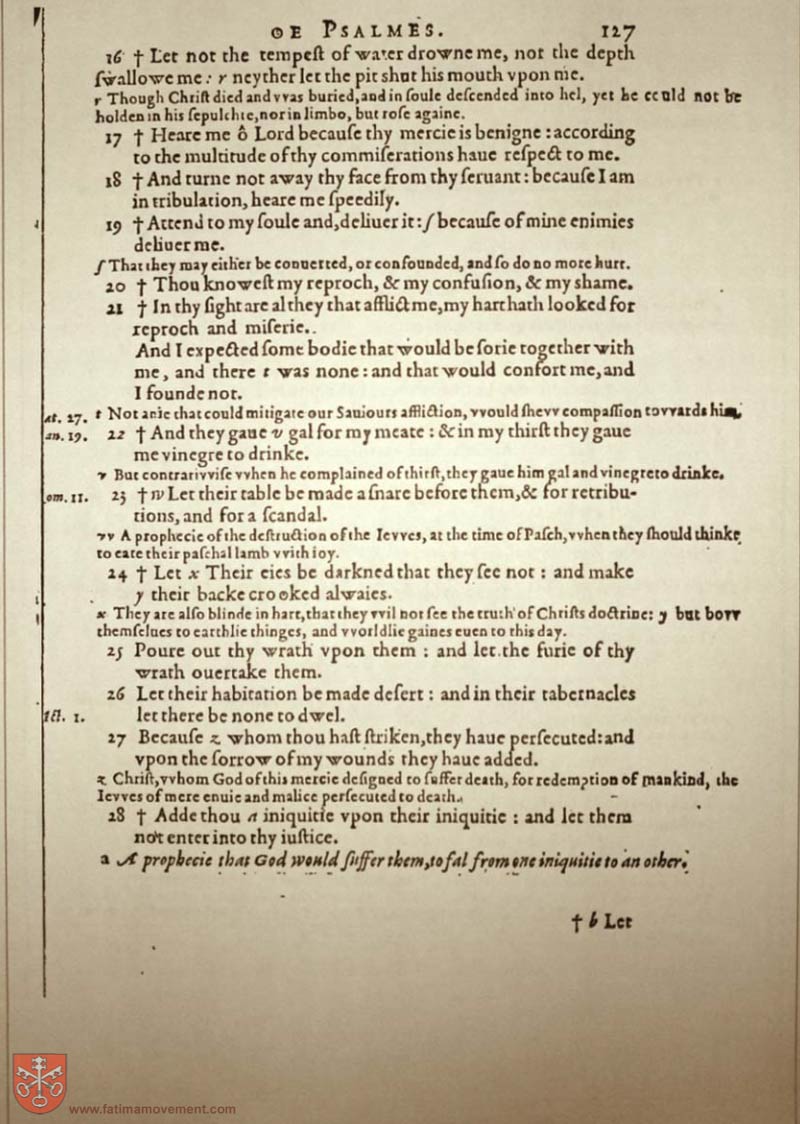 OE PSALMES. 127
16 † Let not the tempeſt of water drowne me, not the depth
ſwallowe me: r neyther let the pit shut his mouth vpon me.
r Though Chriſt died and vvas buried, and in ſoule deſcended into hel, yet he could not be
holden in his ſepulchie, nor in limbo, but roſe againe.
17 † Heare me ô Lord becauſe thy mercie is benigne: according
to the multitude of thy commiſerations haue reſpect to me.
18 † And turne not away thy face from thy ſeruant: becauſe I am
in tribulation, heare me ſpeedily.
19 † Attend to my ſoule and, deliuer it: ſ becauſe of mine enimies
deliuer me.
ſ That they may either be conuerted, or confounded, and ſo do no more hurt.
20 † Thou knoweſt my reproch, & my confuſion, & my shame.
21 † In thy ſight are al they that afflict me, my hart hath looked for
reproch and miſerie..
And I expected ſome bodie that would be ſorie together with
me, and there t was none: and that would confort me, and
I founde not.
at. 27. t Not anie that could mitigate our Sauiours affliction, vvould ſhevv compaſſion tovvards him.
an. 19. 22 † And they gaue v gal for my meate: & in my thirſt they gaue
me vinegre to drinke.
v But contrarivviſe vvhen he complained of thirſt, they gaue him gal and vinegre to drinke.
om. 11. 23 † w Let their table be made a ſnare before them, & for retribu-
tions, and for a ſcandal.
vv A prophecie of the deſtruction of the Ievves, at the time of Paſch, vvhen they ſhould thinke
to eate their paſchal lamb vvith ioy.
24 † Let x Their eies be darkned that they ſee not: and make
y their backe crooked alwaies.
x They are alſo blinde in hart, that they vvil not ſee the truth of Chriſts doctrine: y but bovv
themſelues to earthlie thinges, and vvorldlie gaines euen to this day.
25 Poure out thy wrath vpon them: and let the furie of thy
wrath ouertake them.
26 Let their habitation be made deſert: and in their tabernacles
let there be none to dwel.
27 Becauſe z whom thou haſt ſtriken, they haue perſecuted: and
vpon the ſorrow of my wounds they haue added.
z Chriſt, vvhom God of this mercie deſigned to ſuffer death, for redemption of mankind, the
Ievves of mere enuie and malice perſecuted to death.
28 † Adde thou a iniquitie vpon their iniquitie: and let them
not enter into thy iuſtice.
a A prophecie that God would ſuffer them, to fal from one iniquitie to an other.
† b Let
www.fatimamovement.com